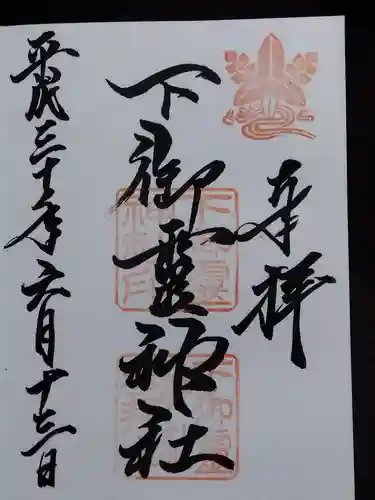 奉拝
下御霊神社
平成三十年六月十三日